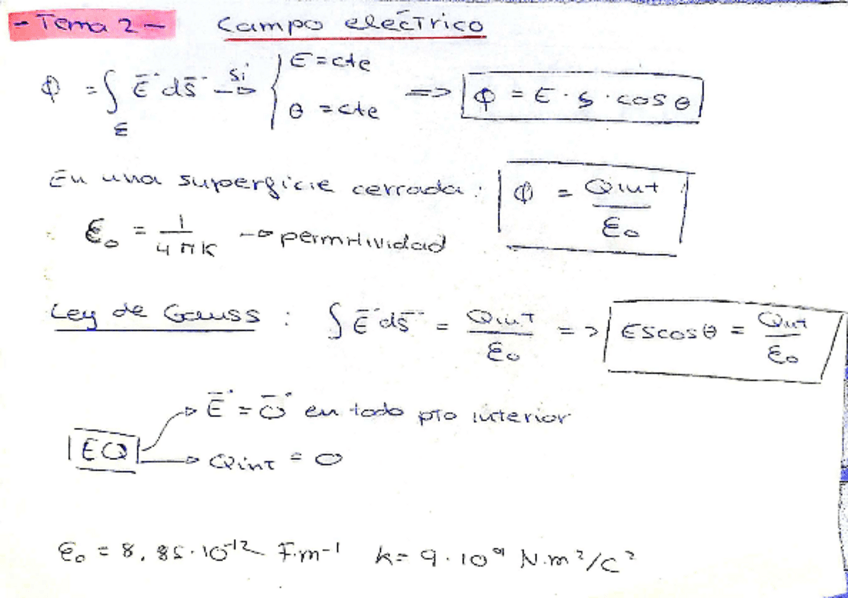 - Tema 2 - Campo eléctrico
Φ = ∫_Σ E⃗ dS⃗ si→ { E = cte θ = cte => Φ = E · S · cos θ
En una superficie cerrada: Φ = Qint / ε₀
ε₀ = 1 / 4πK → permitividad
Ley de Gauss: ∫ E⃗ dS⃗ = Qint / ε₀ => E S cos θ = Qint / ε₀
EQ → E⃗ = 0⃗ en todo pto interior
→ Qint = 0
ε₀ = 8,85·10⁻¹² F·m⁻¹ k = 9·10⁹ N·m²/C²